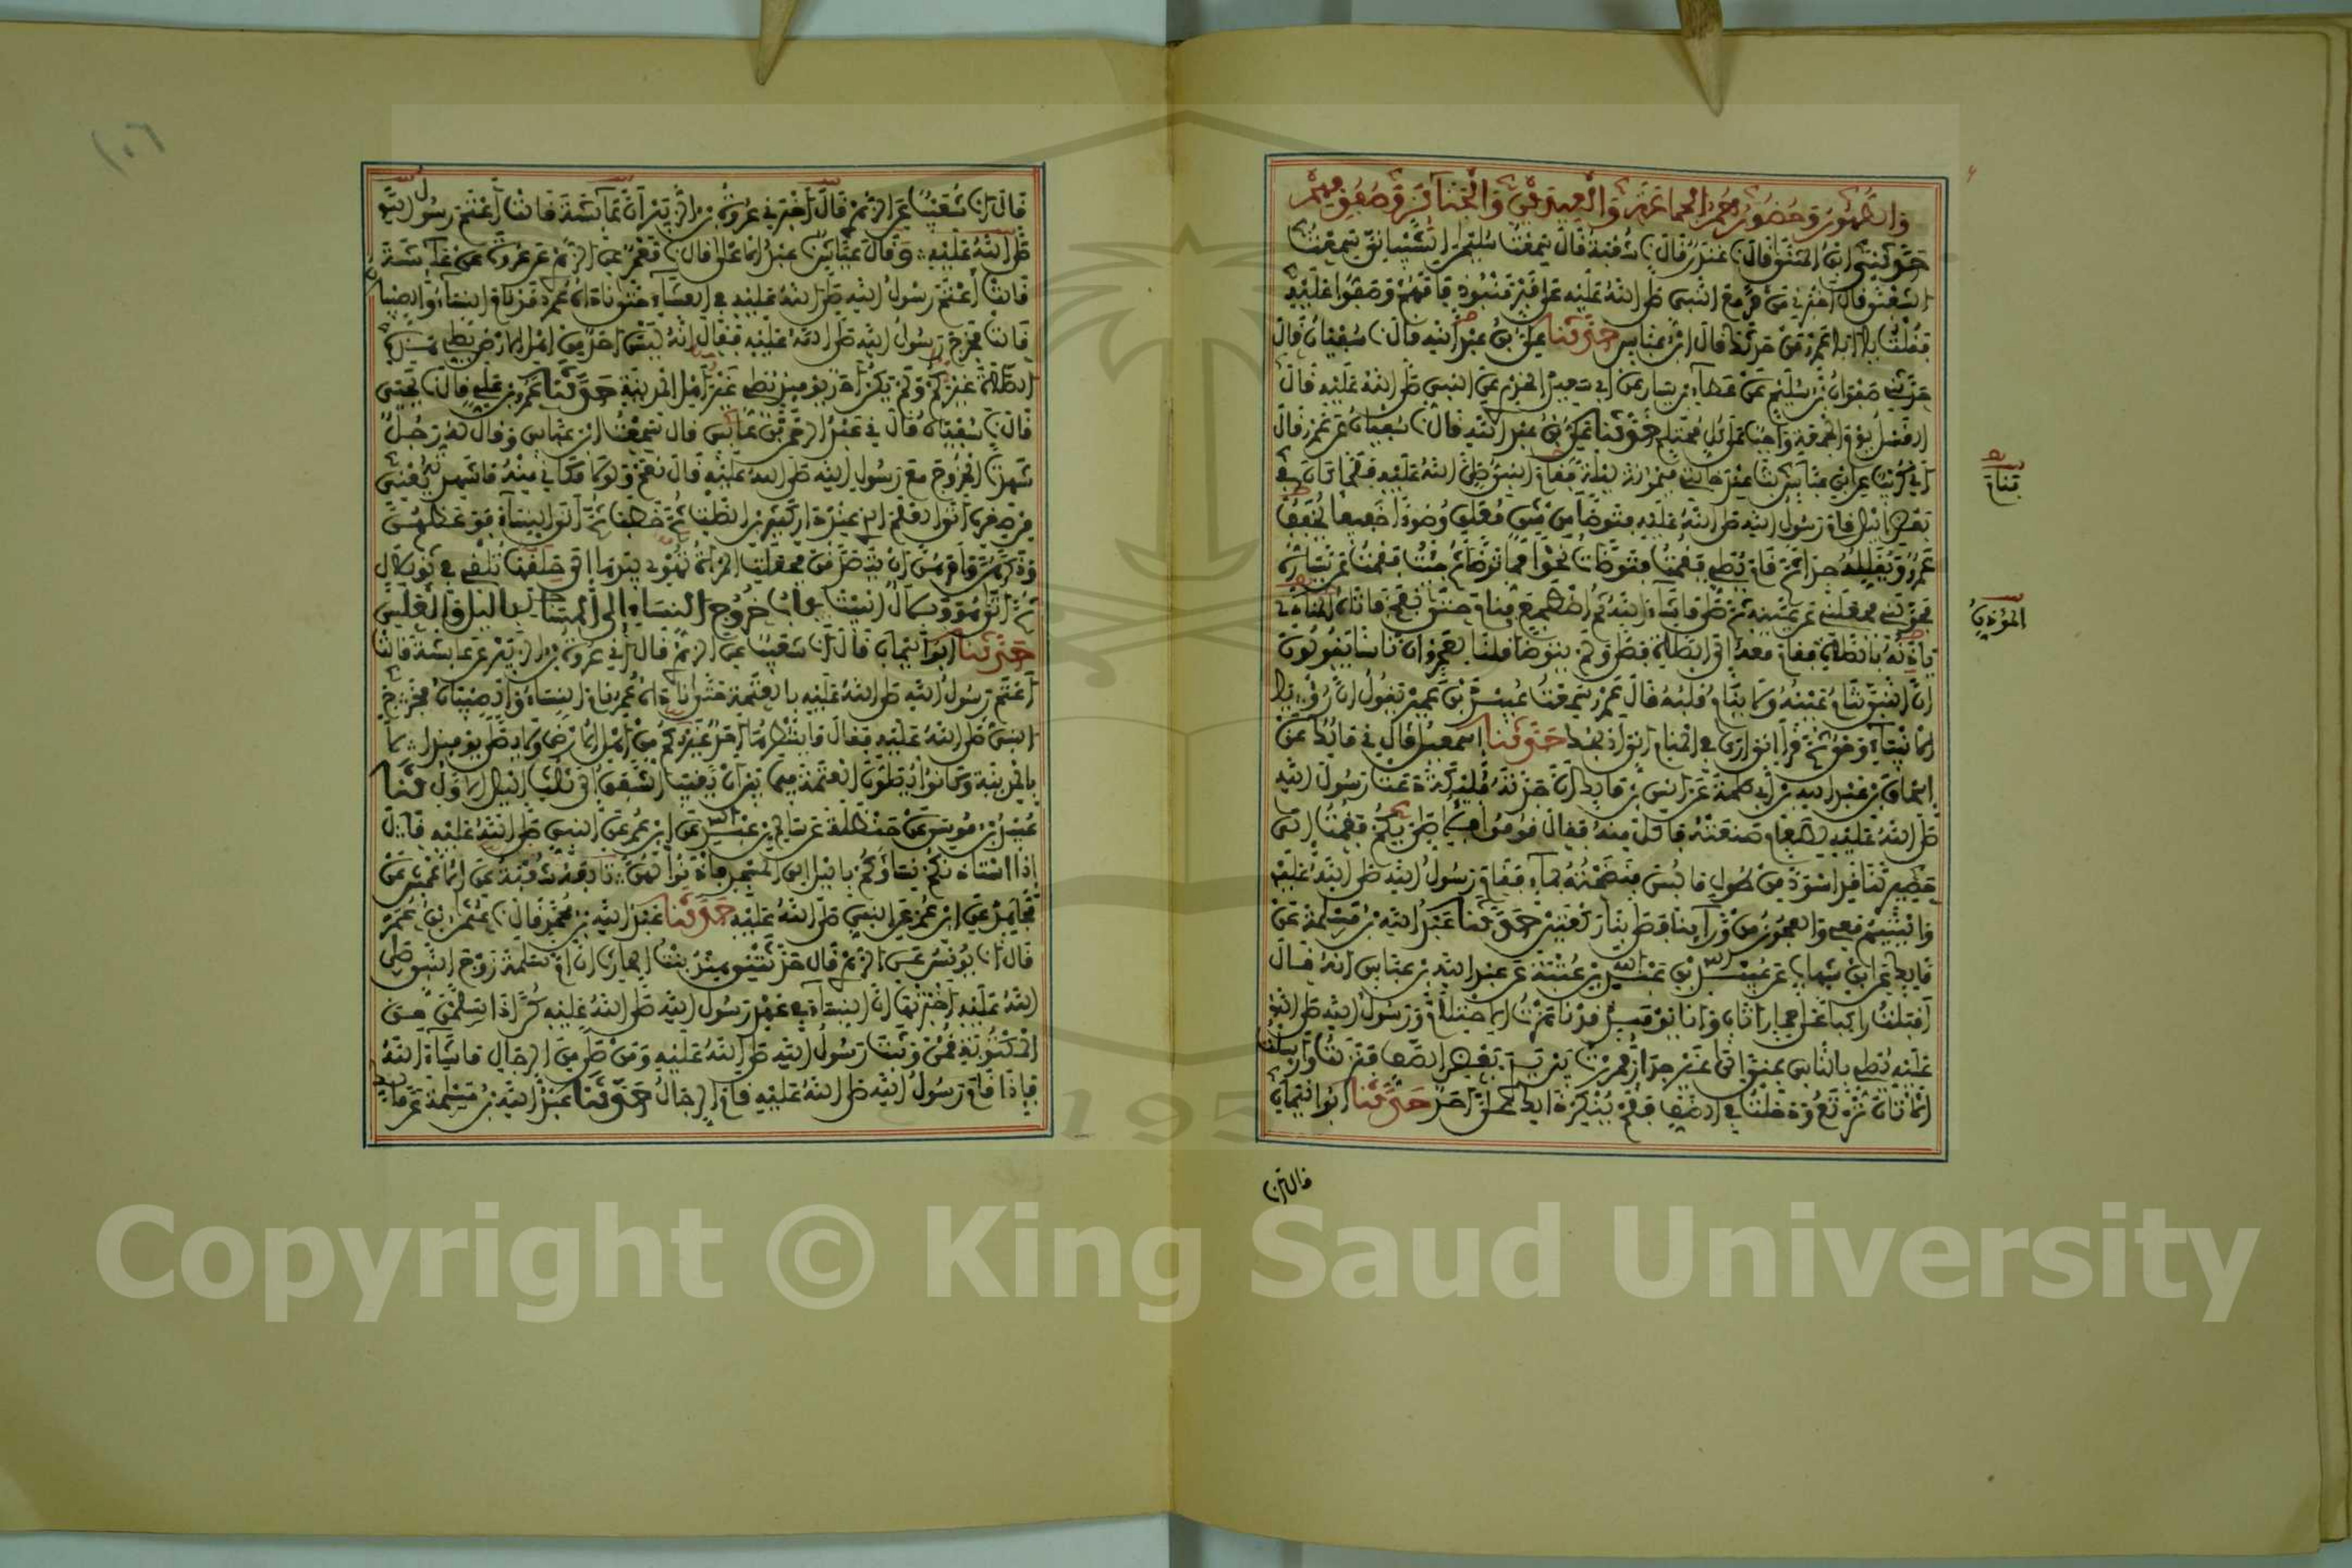 والطهور وحضورهم الجماعة والعيدين والجنائز وصفوفهم
حدثني ابن المثنى قال نا غندر قال نا شعبة قال سمعت سليمن الشيباني سمعت
الشعبي قال اخبرني من مر مع النبي صلى الله عليه على قبر منبوذ فامهم وصفوا عليه
فقلت يا ابا عمرو من حدثك قال ابن عباس حدثنا علي بن عبد الله قال نا سفيان قال
حدثني صفوان بن سليم عن عطاء بن يسار عن ابي سعيد الخدري عن النبي صلى الله عليه قال
الغسل يوم الجمعة واجب على كل محتلم حدثنا علي بن عبد الله قال نا سفيان عن عمرو قال
اني كريب عن ابن عباس بت عند خالتي ميمونة ليلة فقام النبي صلى الله عليه فلما كان في
بعض الليل قام رسول الله صلى الله عليه فتوضأ من شن معلق وضوءا خفيفا يخففه
عمرو ويقلله جدا ثم قام يصلي فقمت فتوضأت نحوا مما توضأ ثم جئت فقمت عن يساره
فحولني فجعلني عن يمينه ثم صلى ما شاء الله ثم اضطجع فنام حتى نفخ فاتاه المنادي
ياذنه بالصلاة فقام معه الى الصلاة فصلى ولم يتوضأ قلنا لعمرو ان ناسا يقولون
ان النبي تنام عينه ولا ينام قلبه قال عمرو سمعت عبيد بن عمير يقول ان رؤيا
الانبياء وحي ثم قرأ اني ارى في المنام اني اذبحك حدثنا اسمعيل قال ني مالك عن
اسحاق بن عبد الله بن ابي طلحة عن انس بن مالك ان جدته مليكة دعت رسول الله
صلى الله عليه لطعام صنعته فاكل منه فقال قوموا فلاصلي بكم فقمت الى
حصير لنا قد اسود من طول ما لبس فنضحته بماء فقام رسول الله صلى الله عليه
واليتيم معي والعجوز من ورائنا فصلى بنا ركعتين حدثنا عبد الله بن مسلمة عن
مالك عن ابن شهاب عن عبيد الله بن عبد الله بن عتبة عن عبد الله بن عباس انه قال
اقبلت راكبا على حمار اتان وانا يومئذ قد ناهزت الاحتلام ورسول الله صلى الله
عليه يصلي بالناس بمنى الى غير جدار فمررت بين يدي بعض الصف فنزلت وارسلت
الاتان ترتع ودخلت في الصف فلم ينكر ذلك علي احد حدثنا ابو اليمان
قيام
المؤذن
قال انا
١٠٦
قال انا شعيب عن الزهري قال اخبرني عروة بن الزبير ان عائشة قالت اعتم رسول الله
صلى الله عليه وقال عياش نا عبد الاعلى قال نا معمر عن الزهري عن عروة عن عائشة
قالت اعتم رسول الله صلى الله عليه في العشاء حتى ناداه عمر قد نام النساء والصبيان
قالت فخرج رسول الله صلى الله عليه فقال انه ليس احد من اهل الارض يصلي هذه
الصلاة غيركم ولم يكن احد يومئذ يصلي غير اهل المدينة حدثنا عمرو بن علي قال نا يحيى
قال نا سفيان قال ني عبد الرحمن بن عابس قال سمعت ابن عباس وقال له رجل
شهدت الخروج مع رسول الله صلى الله عليه قال نعم ولولا مكاني منه ما شهدته يعني
من صغره اتى العلم الذي عند دار كثير بن الصلت ثم خطب ثم اتى النساء فوعظهن
وذكرهن وامرهن ان يتصدقن فجعلت المرأة تهوي بيدها الى حلقها تلقي في ثوب بلال
ثم اتى هو وبلال البيت باب خروج النساء الى المساجد بالليل والغلس
حدثنا ابو اليمان قال انا شعيب عن الزهري قال اني عروة بن الزبير عن عائشة قالت
اعتم رسول الله صلى الله عليه بالعتمة حتى ناداه عمر نام النساء والصبيان فخرج
النبي صلى الله عليه فقال ما ينتظرها احد غيركم من اهل الارض ولا يصلى يومئذ الا
بالمدينة وكانوا يصلون العتمة فيما بين ان يغيب الشفق الى ثلث الليل الاول حدثنا
عبيد الله بن موسى عن حنظلة عن سالم بن عبد الله عن ابن عمر عن النبي صلى الله عليه قال
اذا استاذنكم نساؤكم بالليل الى المسجد فاذنوا لهن تابعه شعبة عن الاعمش عن
مجاهد عن ابن عمر عن النبي صلى الله عليه حدثنا عبد الله بن محمد قال نا عثمن بن عمر
قال انا يونس عن الزهري قال حدثتني هند بنت الحارث ان ام سلمة زوج النبي صلى
الله عليه اخبرتها ان النساء في عهد رسول الله صلى الله عليه كن اذا سلمن من
المكتوبة قمن وثبت رسول الله صلى الله عليه ومن صلى من الرجال ما شاء الله
فاذا قام رسول الله صلى الله عليه قام الرجال حدثنا عبد الله بن مسلمة عن مالك
Copyright © King Saud University
1957